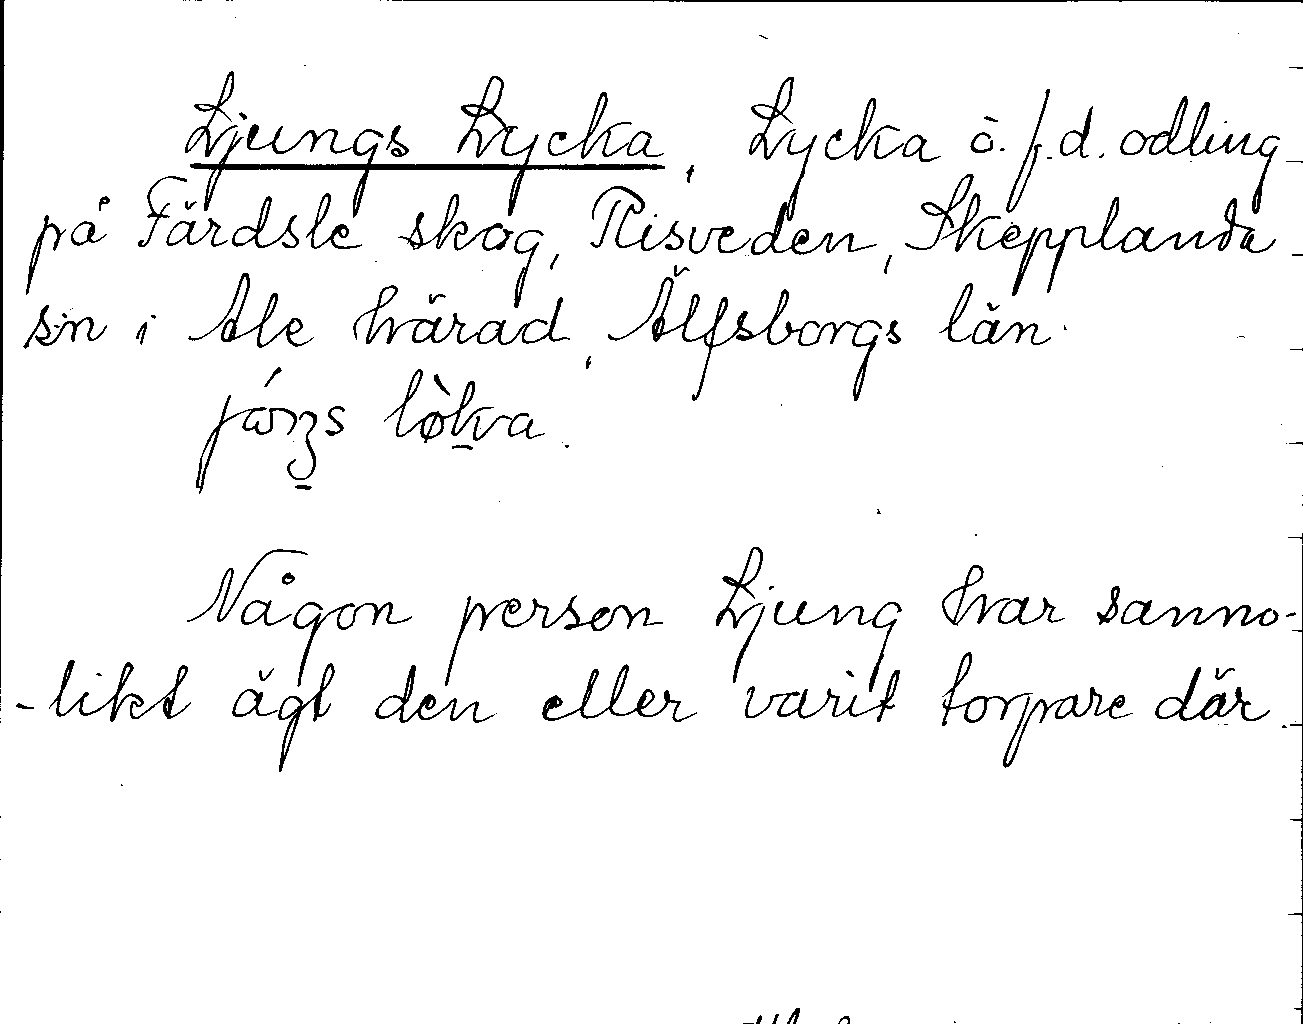 Ljungs Lycka, Lycka ö. f.d. odling
på Färdsle skog, Risveden, Skepplanda
sn i Ale härad, Älfsborgs län.
lo̱kva.
Någon person Ljung har sanno-
-likt ägt den eller varit torpare där.